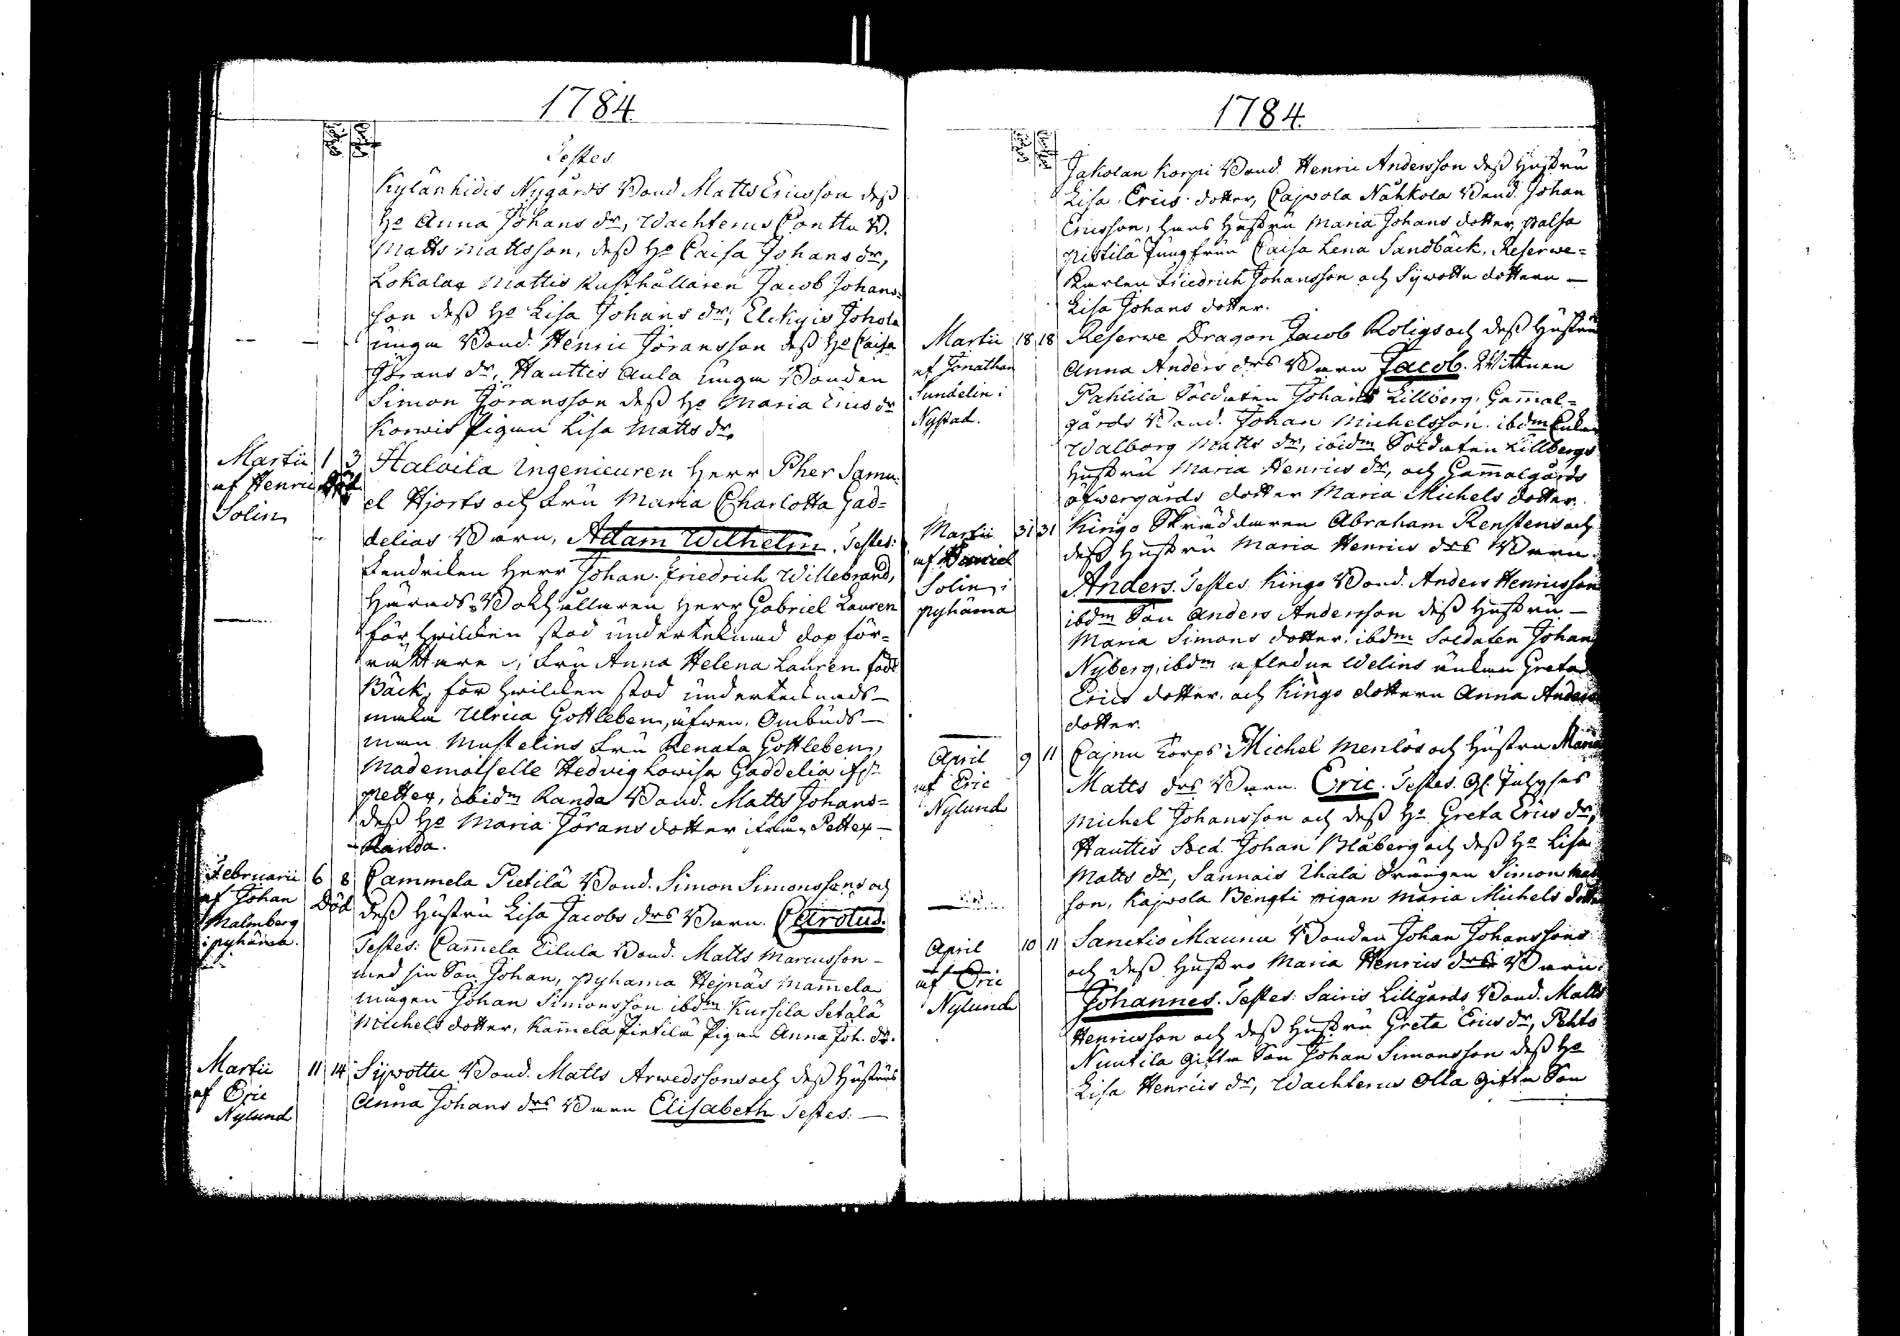 1784.
Testes
Kylänhidis Nygårds Bond. Matts Ericsson deß
Ho Anna Johans dr, Wachterus Conttu B.
Matts Mattsson, deß Ho Caisa Johans dr,
Lokalax Mattis Rusthållaren Jacob Johans=
son deß Ho Lisa Johans dr, Elekyis Johola
unga Bond. Henric Jöransson deß Ho Caisa
Jörans dr, Hauttis Aula unga Bonden
Simon Jöransson deß Ho Maria Erics dr
Korwis Pigan Lisa Matts dr.
Martii 1 3 Halvila Ingenieuren Herr Pher Samu=
af Henric Död el Hjorts och Fru Maria Charlotta Gad=
Solin
delias Barn, Adam Wilhelm. Testes:
Fendriken Herr Johan Friedrich Willebrand,
Härads Bokhållaren Herr Gabriel Lauren
för hvilken stod undertecknad dop för=
rättare, Fru Anna Helena Lauren född
Bäck, för hvilken stod undertecknads
maka Ulrica Gottleben, äfwen Ombuds
man Mustelins Fru Renata Gottleben,
Mademoiselle Hedvig Lowisa Gaddelia
Pettex, ibidm Randa Bond. Matts Johans=
deß Ho Maria Jörans dotter ifrån Pettex
Randa.
Februarii 6 8 Cammela Pietilä Bond. Simon Simonssons och
af Johan Död deß Hustru Lisa Jacobs drs Barn. Carolus.
Malmberg
i pyhäma. Testes: Camela Eilula Bond. Matts Marcusson
med sin Son Johan, pyhama Hejnäs Mamela
mågen Johan Simonsson ibdm Kursila Setälä
Michels dotter, Kamela Pietilä Pigan Anna Joh. dr.
Martii 11 14 Sÿwottu Bond. Matts Arwedssons och deß Hustrus
af Eric Anna Johans drs Barn Elisabeth Testes:
Nylund
1784.
Jakolan Korpi Bond. Henric Andersson deß Hustru
Lisa Erics dotter, Cajwola Nåhkola Bond. Johan
Ericsson, hans Hustru Maria Johans dotter, Palsa
Pietilä Jungfrun Caisa Lena Sandbäck, Reserwe=
Karlen Friedrich Johansson och Sÿwottu dottern
Lisa Johans dotter.
Martii 18 18 Reserwe Dragon Jacob Roligs och deß Hustrus
af Jonathan Anna Anders drs Barn Jacob. Wittnen
Sundelin i Pahula Soldaten Johan Lillberg, Gammal=
Nystad. gårds Bond. Johan Michelsson ibdm Enkan
Walborg Matts dr, ibidm Soldaten Lillbergs
Hustru Maria Henrics dr, och Gammalgårds
öfwergårds dotter Maria Michels dotter.
Martii 31 31 Kingo Skräddaren Abraham Renstens och
af Daniel deß Hustru Maria Henrics drs Barn
Solin i Anders. Testes Kingo Bond. Anders Henricsson
pyhäma ibdm Son Anders Andersson deß Hustru
Maria Simons dotter, ibdm Soldaten Johan
Nyberg, ibdm afledne Welins enkan Greta
Erics dotter, och Kingo dottern Anna Anders
dotter.
April 9 11 Cajnu Torps Michel Menlös och Hustru Maria
af Eric Matts drs Barn. Eric. Testes.
Nylund Michel Johansson och deß Ho Greta Erics dr,
Hauttis Sold. Johan Blåberg och deß Ho Lisa
Matts dr, Sannais Uhala Drängen Simon Mats
son, Kajwola Bengti pigan Maria Michels dotter
April 10 11 Sanctio Maunu Bonden Johan Johanssons
af Eric och deß Hustru Maria Henrics drs Barn
Nylund Johannes. Testes: Sairis Lillgårds Bond. Matts
Henricsson och deß Hustru Greta Erics dr, Pehto
Nuutila gifta Son Johan Simonsson deß Ho
Lisa Henrics dr, Wachterus Olla gifta Son